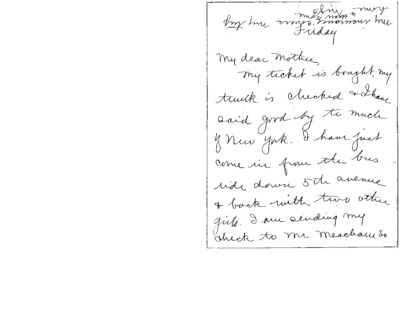 Friday
My dear Mother,
My ticket is bought, my
trunk is checked & I have
said good by to much
of New York. I have just
come in from the bus
ride down 5th avenue
& back with two other
girls. I am sending my
check to Mr Meacham so